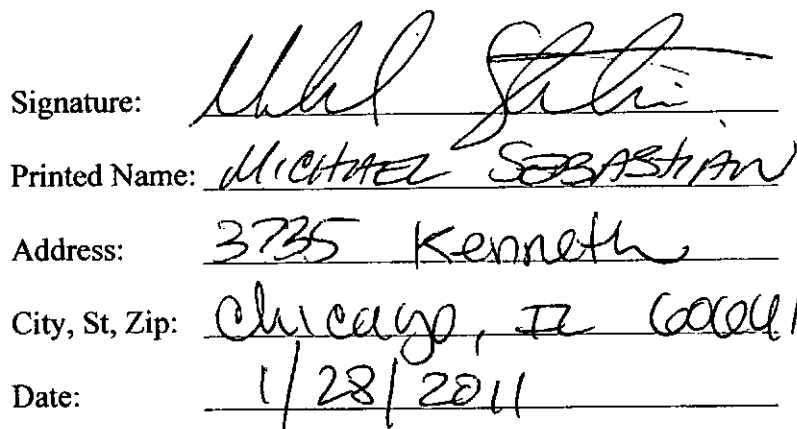 Signature:
Printed Name: MICHAEL SEBASTIAN
Address: 3735 Kenneth
City, St, Zip: Chicago, IL 60641
Date: 1/28/2011